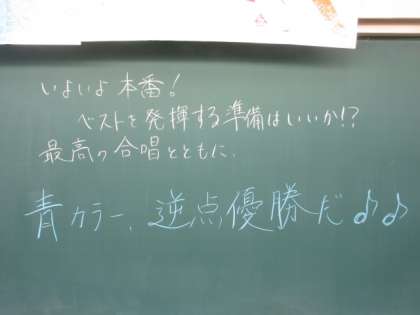 いよいよ本番!
ベストを発揮する準備はいいか!?
最高の合唱とともに、
青カラー、逆点優勝だ♪♪